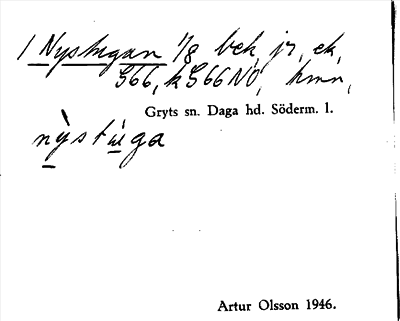 1 Nystugan 1/8 bek, jr, ek,
G66, k G66 NO, hmn,
Gryts sn. Daga hd. Söderm. l.
nỳstúga
Artur Olsson 1946.